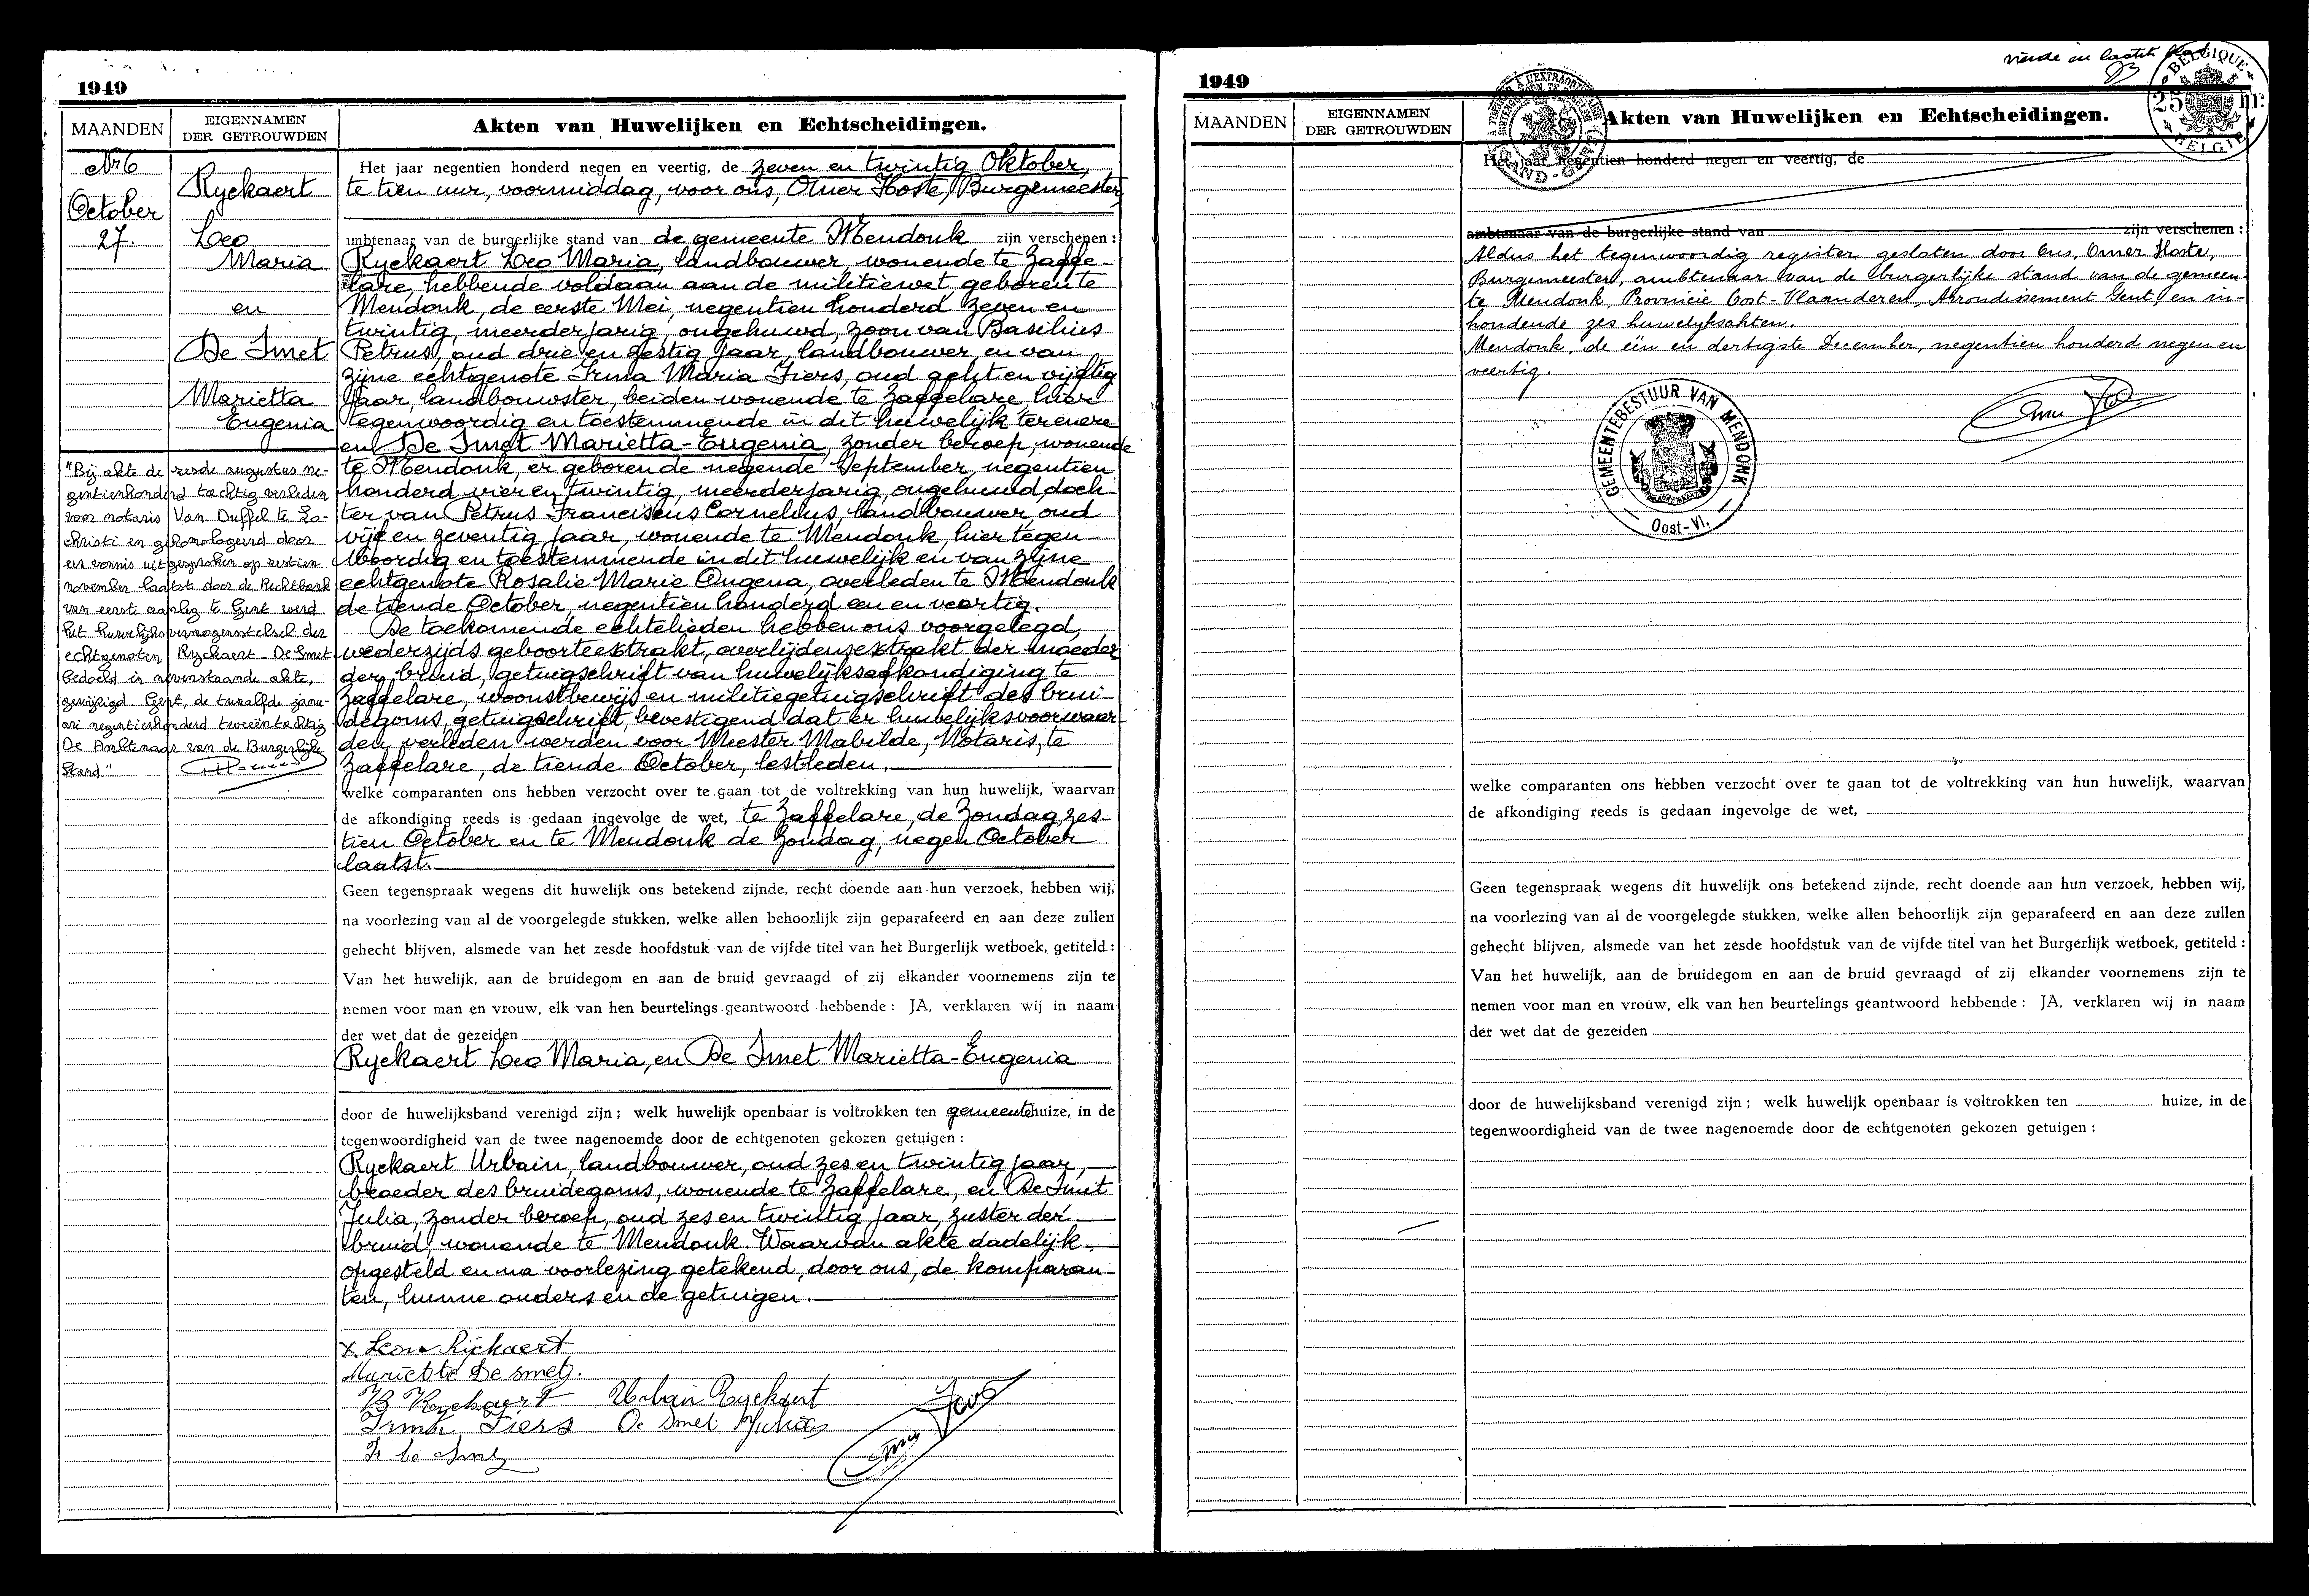 1949
MAANDEN
EIGENNAMEN
DER GETROUWDEN
Akten van Huwelijken en Echtscheidingen.
Nr 6
October
27.
Ryckaert
Leo
Maria
en
De Smet
Marietta
Eugenia
"Bij akte de zesde augustus ne-
gentienhonderd tachtig verleden
voor notaris Van Duffel te Lo-
christi en gehomologeerd door
een vonnis uitgesproken op zestien
november laatst door de Rechtbank
van eerste aanleg te Gent werd
het huwelijksvermogensstelsel der
echtgenoten Ryckaert - De Smet
bedoeld in nevenstaande akte,
gewijzigd. Gent, de twaalfde janu-
ari negentienhonderd tweeëntachtig
De Ambtenaar van de Burgerlijke
Stand"
Het jaar negentien honderd negen en veertig, de zeven en twintig Oktober,
te tien uur, voormiddag, voor ons, Omer Hoste, Burgemeester,
ambtenaar van de burgerlijke stand van de gemeente Mendonk zijn verschenen :
Ryckaert Leo Maria, landbouwer, wonende te Zaffe-
lare, hebbende voldaan aan de militiewet geboren te
Mendonk, de eerste Mei, negentien honderd zeven en
twintig, meerderjarig, ongehuwd, zoon van Basilius
Petrus, oud drie en zestig jaar, landbouwer, en van
zijne echtgenote Irma Maria Fiers, oud acht en vijftig
jaar, landbouwster, beiden wonende te Zaffelare hier
tegenwoordig en toestemmende in dit huwelijk ter enere
en De Smet Marietta-Eugenia, zonder beroep, wonende
te Mendonk, er geboren de negende September, negentien
honderd vier en twintig, meerderjarig, ongehuwd, doch-
ter van Petrus Franciscus Cornelius, landbouwer, oud
vijf en zeventig jaar, wonende te Mendonk, hier tegen-
woordig en toestemmende in dit huwelijk en van zijne
echtgenote Rosalie Marie Ongena, overleden te Mendonk
de tiende October, negentien honderd een en veertig.
De toekomende echtelieden hebben ons voorgelegd,
wederzijds geboorteextrakt, overlijdensextrakt der moeder
der bruid, getuigschrift van huwelijksafkondiging te
Zaffelare, woonstbewijs en militiegetuigschrift des brui-
degoms, getuigschrift, bevestigend dat er huwelijksvoorwaar-
den verleden werden voor Meester Mabilde, Notaris, te
Zaffelare, de tiende October, lestleden.
welke comparanten ons hebben verzocht over te gaan tot de voltrekking van hun huwelijk, waarvan
de afkondiging reeds is gedaan ingevolge de wet, te Zaffelare, de Zondag, zes-
tien October en te Mendonk de Zondag, negen October
laatst.
Geen tegenspraak wegens dit huwelijk ons betekend zijnde, recht doende aan hun verzoek, hebben wij,
na voorlezing van al de voorgelegde stukken, welke allen behoorlijk zijn geparafeerd en aan deze zullen
gehecht blijven, alsmede van het zesde hoofdstuk van de vijfde titel van het Burgerlijk wetboek, getiteld :
Van het huwelijk, aan de bruidegom en aan de bruid gevraagd of zij elkander voornemens zijn te
nemen voor man en vrouw, elk van hen beurtelings geantwoord hebbende : JA, verklaren wij in naam
der wet dat de gezeiden
Ryckaert Leo Maria, en De Smet Marietta-Eugenia
door de huwelijksband verenigd zijn ; welk huwelijk openbaar is voltrokken ten gemeentehuize, in de
tegenwoordigheid van de twee nagenoemde door de echtgenoten gekozen getuigen :
Ryckaert Urbain, landbouwer, oud zes en twintig jaar,
broeder des bruidegoms, wonende te Zaffelare, en De Smet
Julia, zonder beroep, oud zes en twintig jaar, zuster der
bruid, wonende te Mendonk. Waarvan akte dadelijk
opgesteld en na voorlezing getekend, door ons, de komparan-
ten, hunne ouders en de getuigen.
x Leon Rijckaert
Mariette De Smet.
B Ryckaert Urbain Ryckaert
Irma Fiers De Smet Julia
1949
vierde en laatste blad
BELGIQUE
25 fr.
BELGIE
MAANDEN
EIGENNAMEN
DER GETROUWDEN
Akten van Huwelijken en Echtscheidingen.
Het jaar negentien honderd negen en veertig, de
ambtenaar van de burgerlijke stand van zijn verschenen :
Aldus het tegenwoordig register gesloten door Ons, Omer Hoste,
Burgemeester, ambtenaar van de burgerlijke stand van de gemeen-
te Mendonk, Provincie Oost-Vlaanderen, Arrondissement Gent, en in-
houdende zes huwelijksakten.
Mendonk, de één en dertigste December, negentien honderd negen en
veertig.
GEMEENTEBESTUUR VAN MENDONK
Oost-Vl.
welke comparanten ons hebben verzocht over te gaan tot de voltrekking van hun huwelijk, waarvan
de afkondiging reeds is gedaan ingevolge de wet,
Geen tegenspraak wegens dit huwelijk ons betekend zijnde, recht doende aan hun verzoek, hebben wij,
na voorlezing van al de voorgelegde stukken, welke allen behoorlijk zijn geparafeerd en aan deze zullen
gehecht blijven, alsmede van het zesde hoofdstuk van de vijfde titel van het Burgerlijk wetboek, getiteld :
Van het huwelijk, aan de bruidegom en aan de bruid gevraagd of zij elkander voornemens zijn te
nemen voor man en vrouw, elk van hen beurtelings geantwoord hebbende : JA, verklaren wij in naam
der wet dat de gezeiden
door de huwelijksband verenigd zijn ; welk huwelijk openbaar is voltrokken ten huize, in de
tegenwoordigheid van de twee nagenoemde door de echtgenoten gekozen getuigen :